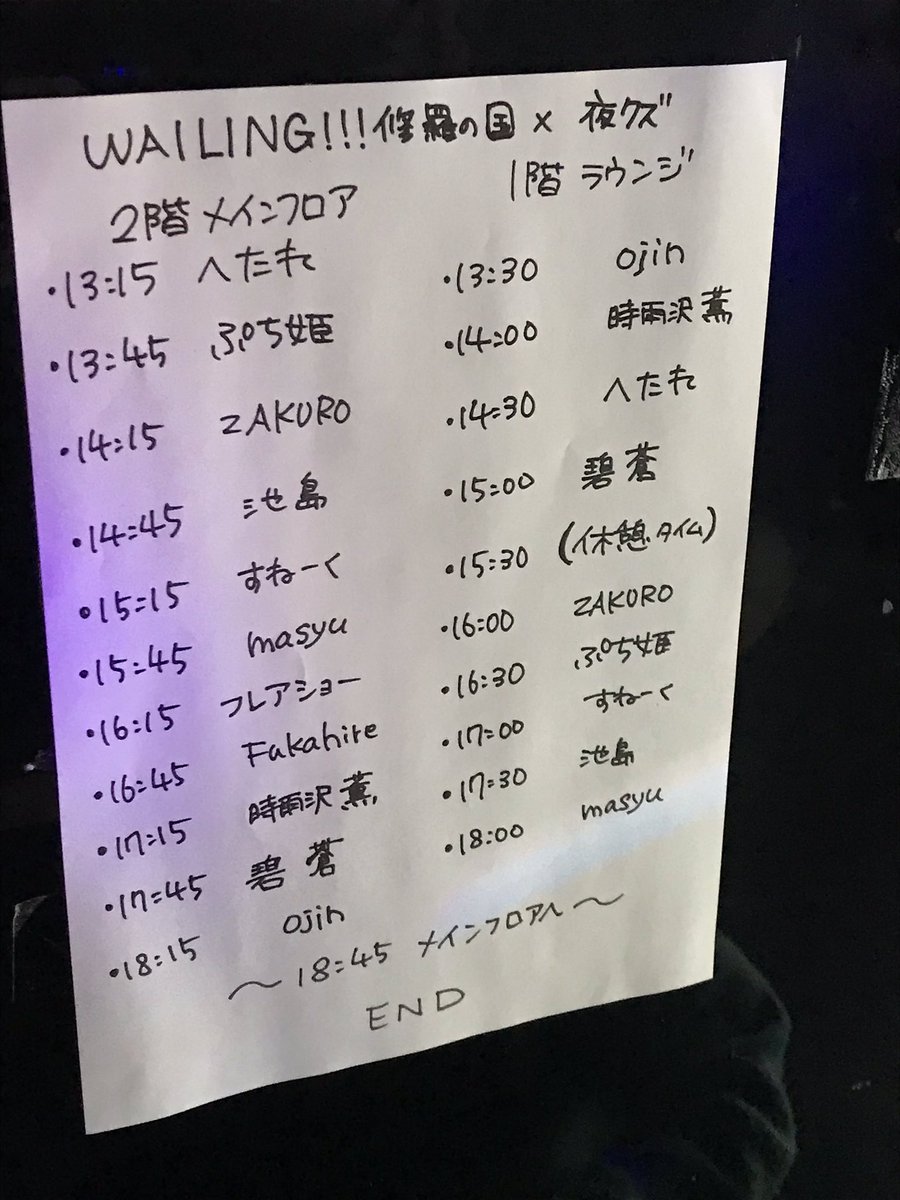 WAILING!!!修羅の国 × 夜クズ
2階 メインフロア
・13:15 へたれ
・13:45 ぷち姫
・14:15 ZAKURO
・14:45 池島
・15:15 すねーく
・15:45 masyu
・16:15 フレアショー
・16:45 Fukahire
・17:15 時雨沢 薫
・17:45 碧 蒼
・18:15 ojin
1階 ラウンジ
・13:30 ojin
・14:00 時雨沢 薫
・14:30 へたれ
・15:00 碧 蒼
・15:30 (休憩タイム)
・16:00 ZAKURO
・16:30 ぷち姫
・17:00 すねーく
・17:30 池島
・18:00 masyu
〜18:45 メインフロアへ〜
END